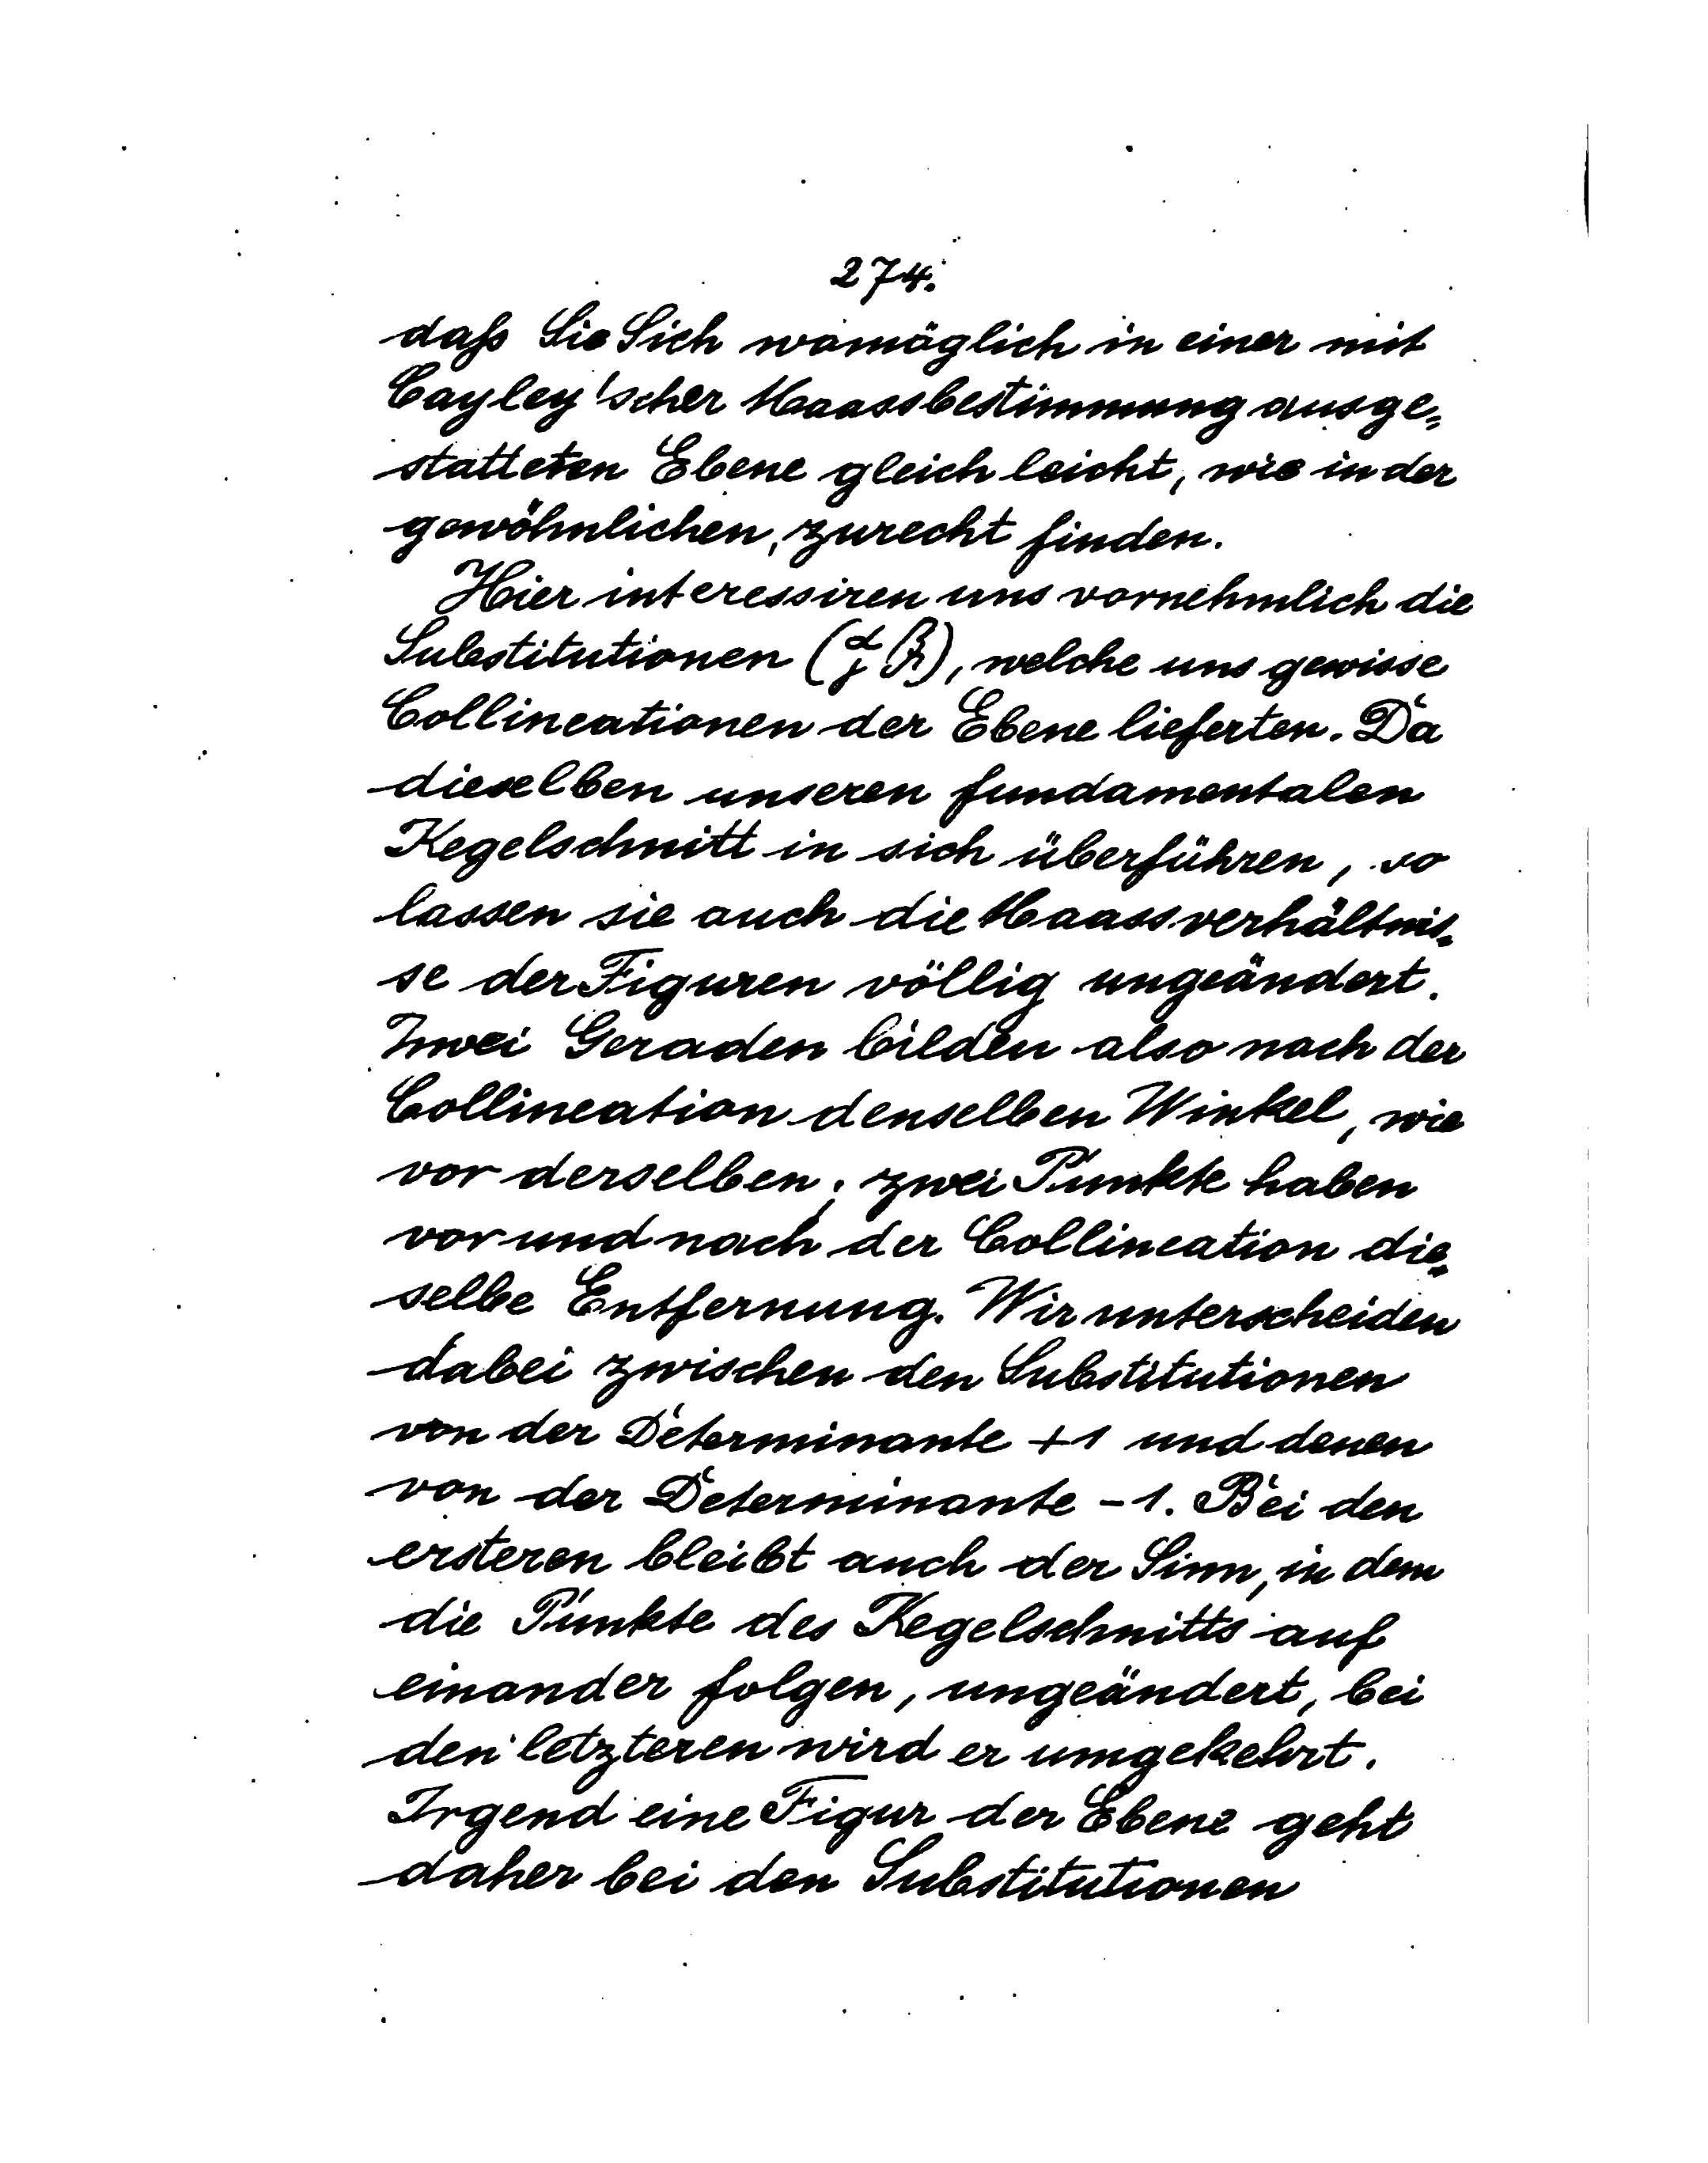 274.
daß Sie Sich womöglich in einer mit
Cayley'scher Maassbestimmung ausge=
statteten Ebene gleich leicht, wie in der
gewöhnlichen, zurecht finden.
Hier interessiren uns vornehmlich die
Substitutionen (α β γ δ), welche uns gewisse
Collineationen der Ebene lieferten. Da
dieselben unseren fundamentalen
Kegelschnitt in sich überführen, so
lassen sie auch die Maassverhältnis=
se der Figuren völlig ungeändert.
Zwei Geraden bilden also nach der
Collineation denselben Winkel, wie
vor derselben; zwei Punkte haben
vor und nach der Collineation die=
selbe Entfernung. Wir unterscheiden
dabei zwischen den Substitutionen
von der Determinante +1 und denen
von der Determinante -1. Bei den
ersteren bleibt auch der Sinn, in dem
die Punkte des Kegelschnitts auf
einander folgen, ungeändert, bei
den letzteren wird er umgekehrt.
Irgend eine Figur der Ebene geht
daher bei den Substitutionen